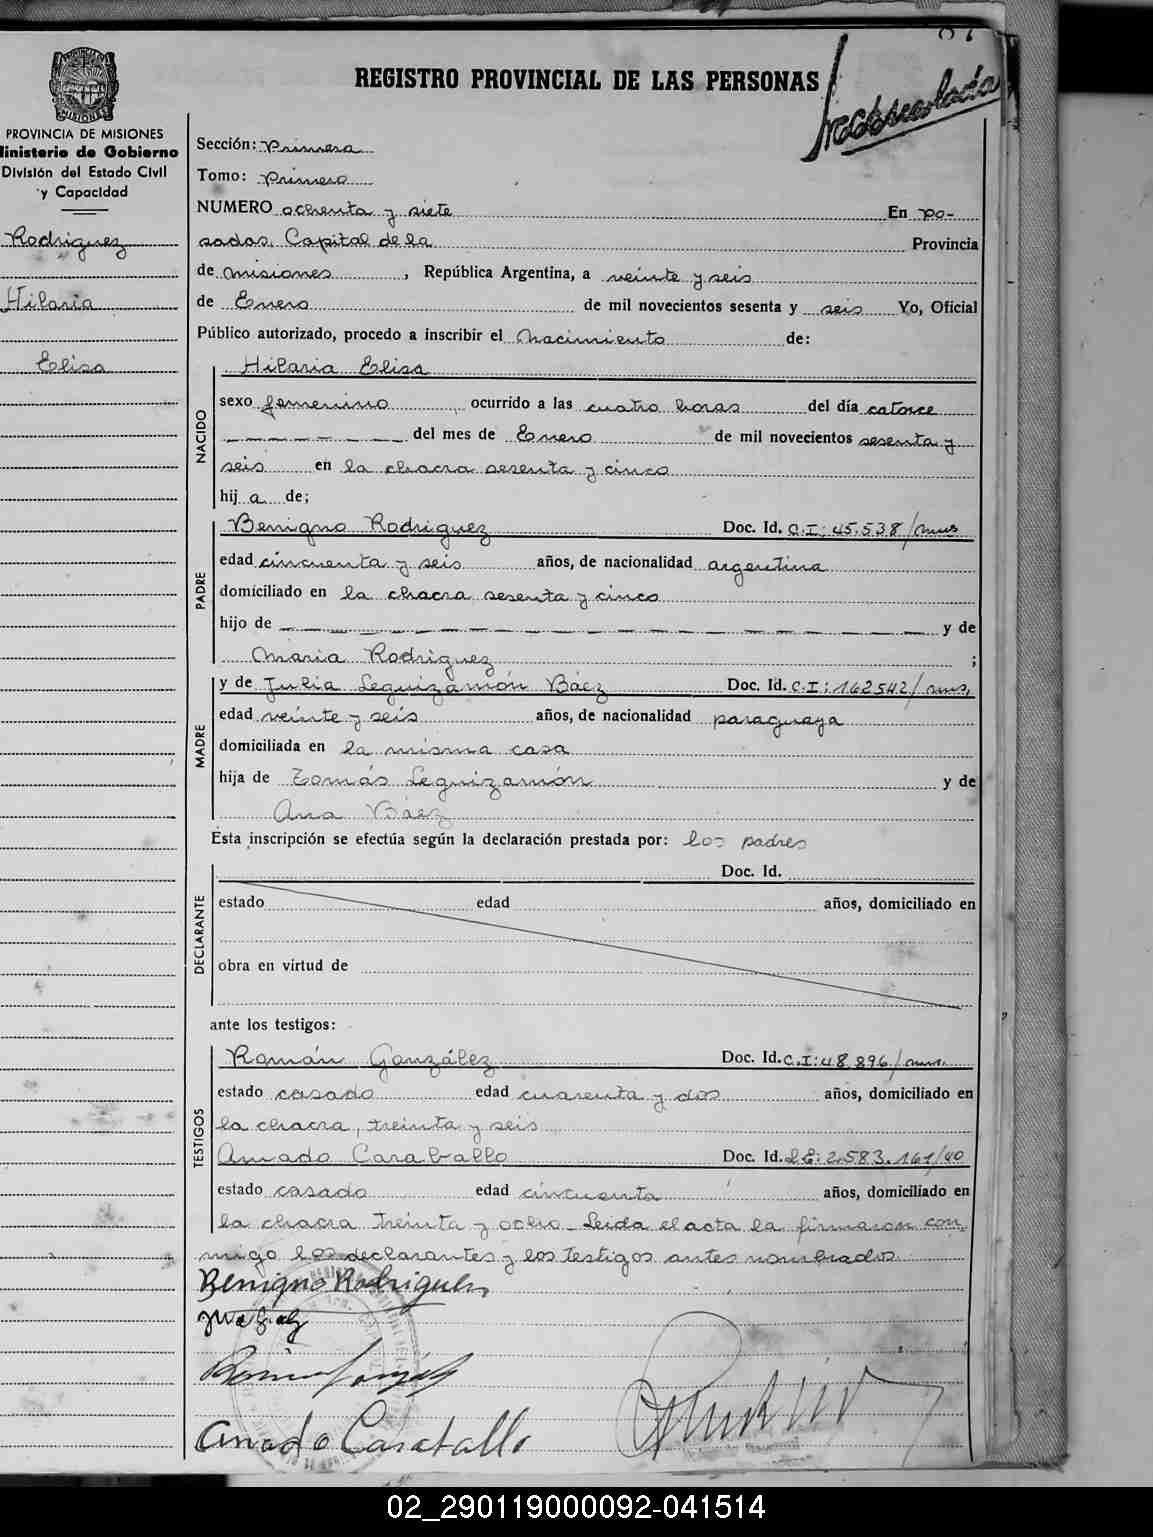 87
REGISTRO PROVINCIAL DE LAS PERSONAS
PROVINCIA DE MISIONES
Ministerio de Gobierno
División del Estado Civil
y Capacidad
Rodriguez
Hilaria
Elisa
Sección: Primera
Tomo: Primero
NUMERO ochenta y siete En Po-
sadas, Capital de la Provincia
de Misiones, República Argentina, a veinte y seis
de Enero de mil novecientos sesenta y seis Yo, Oficial
Público autorizado, procedo a inscribir el Nacimiento de:
NACIDO
Hilaria Elisa
sexo femenino ocurrido a las cuatro horas del día catorce
del mes de Enero de mil novecientos sesenta y
seis en la chacra sesenta y cinco
hij a de;
PADRE
Benigno Rodriguez Doc. Id. C.I: 45.538/mns
edad cincuenta y seis años, de nacionalidad argentina
domiciliado en la chacra sesenta y cinco
hijo de y de
Maria Rodriguez ;
MADRE
y de Julia Leguizamón Báez Doc. Id. C.I: 162542/mns,
edad veinte y seis años, de nacionalidad paraguaya
domiciliada en la misma casa
hija de Tomás Leguizamón y de
Ana Báez
Esta inscripción se efectúa según la declaración prestada por: los padres
DECLARANTE
Doc. Id.
estado edad años, domiciliado en
obra en virtud de
ante los testigos:
TESTIGOS
Román González Doc. Id. C.I: 48.896/mns.
estado casado edad cuarenta y dos años, domiciliado en
la chacra, treinta y seis
Amado Caraballo Doc. Id. LE: 2.583.161/40
estado casado edad cincuenta años, domiciliado en
la chacra treinta y ocho_ Leida el acta la firmaron con-
migo los declarantes y los testigos antes nombrados
Benigno Rodriguez
Amado Caraballo
02_290119000092-041514